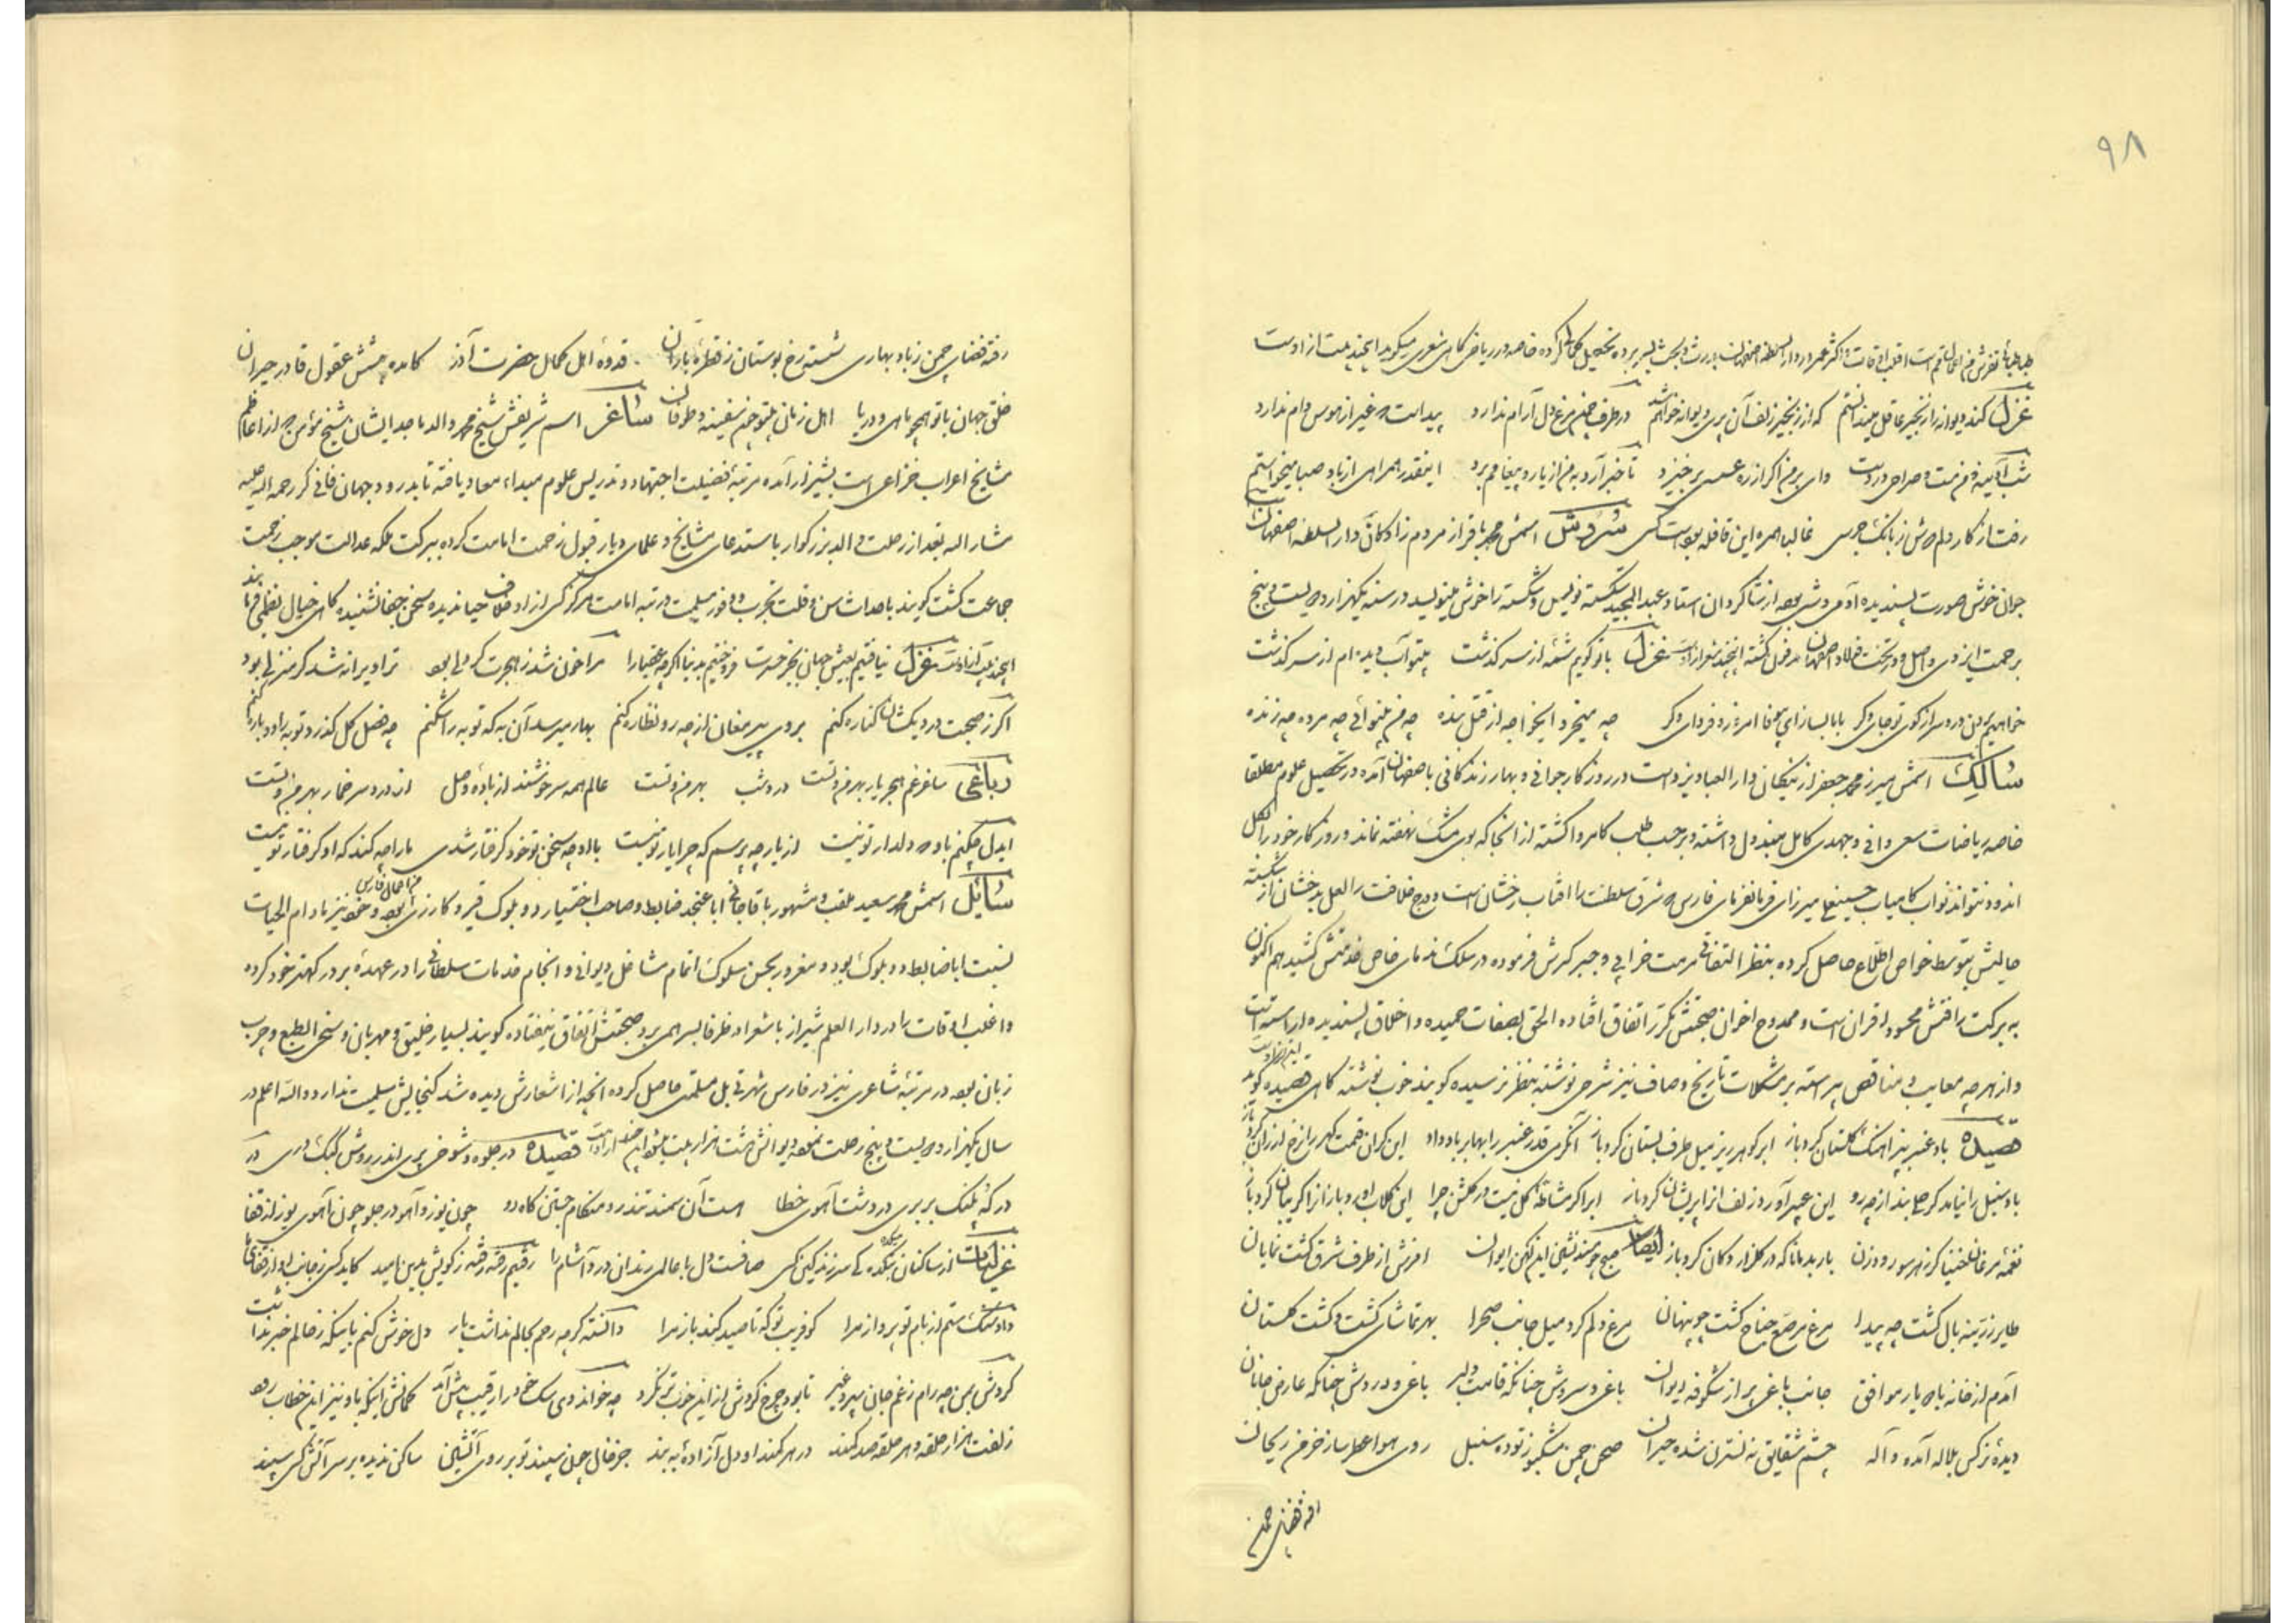 ۹۸
طباطبائی تفرش من اعمال قم است اغلب اوقات و اکثر عمر در دار السلطنه اصفهان بدرس و بحث بسر برده تحصیل کمالات کرده خاصه در ریاضی گاهی شعری میگوید این چند بیت ازوست
غزل کنند دیوانه را زنجیر عاقل میندانستم که از زنجیر زلف آن پری دیوانه خواهم شد در طرف چمن مرغ دل آرام ندارد پیداست که غیر از هوس دام ندارد
شب آدینه و من مست و صراحی در دست وای بر من اگر از ره عسسی برخیزد تا خبر آرد به من از یار و پیغامم برد اینقدر همراهی از باد صبا میخواستم
رفت از کار دلم دوش ز بانگ جرسی غالبا همره این قافله بوده است کسی سروش اسمش محمد باقر از مردم زادگان دار السلطنه اصفهان
جوان خوش صورت پسندیده آدمی روشی بوده از شاگردان استاد عبد المجید شکسته نویس و شکسته را خوش مینویسد در سنه یکهزار و دویست و پنج
برحمت ایزدی واصل و در تخت فولاد اصفهان مدفون گشته این چند شعر ازوست غزل با تو گویم شمه از سر گذشت بیتو آب دیده ام از سر گذشت
خواهیم بردن درد سر از کوی تو جای دگر با ما بساز ای بیوفا امروز و فردای دگر چه میخیزد ایخواجه از قتل بنده چه من بینوائی چه مرده چه زنده
سالک اسمش میرزا محمد جعفر از نیکان دار العباد یزد است در روزگار جوانی و بهار زندگانی باصفهان آمده در تحصیل علوم مطلقا
خاصه ریاضات سعی وافی و جهدی کامل مبذول داشته و برحسب طلب کامروا گشته از آنجا که بوی مشک نهفته نماند و روزگار خور را بگل
اندودن نتواند نواب کامیاب حسینعلی میرزای فرمانفرمای فارس که شرق سلطنت را آفتاب رخشان است و درج خلافت را لعل بدخشان از شکسته
حالیش بتوسط خواص اطلاع حاصل کرده بنظر التفاتی مرمت خرابی و جبر کسرش فرموده در سلک ندمای خاص خدمتش کشید هم اکنون
به برکت رافتش محسود اقران است و ممدوح اخوان صحبتش مکرر اتفاق افتاده الحق بصفات حمیده و اخلاق پسندیده آراسته است
و از هر چه معایب و مناقص پیراسته بر مشکلات تاریخ وصاف نیز شرحی نوشته بنظر نرسیده گویند خوب نوشته گاهی قصیده گوید
قصیده باد عنبر بیز آهنگ گلستان کرد باز ابر گوهر ریز میل طرف بستان کرد باز آن گرمی قدر عنبر را بهابر باد داد این گران قیمت گهر را نرخ ارزان کرد باز
باد سنبل را نیاید گر صبا بند از چه رو این عبیرآور و زلف از او پریشان کرد باز ابر اگر مشاطه گل نیست در گلشن چرا این گلاب آورد و باز آنرا گریبان کرد باز
نغمه مرغان خنیاگر ز هر سو رود زن باربد مانا که در گلزار دکان کرد باز ایضا صبح چو مسند نشین این کهن ایوان افسرش از طرف شرق گشت نمایان
طایر زرینه بال گشت چه پیدا مرغ مرصع جناح گشت چو پنهان مرغ دلم کرد میل جانب صحرا بهر تماشای گشت و گشت گلستان
آمدم از خانه با دو یار موافق جانب باغی پر از شکوفه و ایوان باغی و سروش چنانکه قامت دلبر باغی و وردش چنانکه عارض جانان
دیده نرگس بلاله آمده واله چشم شقایق به نسترن شده حیران صحن چمن مشکبو ز توده سنبل روی هوا عطرساز خرمن ریحان
رفته فضای چمن
رفته فضای چمن ز باد بهاری شسته رخ بوستان ز قطره باران قدوه اهل کمال حضرت آذر کامده در مدحتش عقول قادر حیران
خلق جهان با تو همچو ماهی و دریا اهل زمانه بیتو چون سفینه و طوفان ساغر اسم شریفش شیخ محمد والد ماجد ایشان شیخ مؤمن که از اعاظم
مشایخ اعراب خزاعی است بشیراز آمده مرتبه فضیلت اجتهاد و تدریس علوم مبداء و معاد یافته تا بدرود جهان فانی کرد رحمه الله علیه
مشار الیه بعد از رحلت والد بزرگوار باستدعای مشایخ و علمای دیار قبول زحمت امامت کرده ببرکت ملکه عدالت موجب رحمت
جماعت گشت گویند با حداثت سن و قلت تجربت و وفور سلیمت در رتبه امامت هرگز کسی از او خلاف حیا ندیده سخن جفا نشنیده گاهی خیال نظمی فرماید
این چند بیت از ایشانست غزل نیافتیم بعیش جهان بجز حسرت فروختیم بدنیا اگرچه عقبا را مرا خون شد ز هجرت گر دلی بود ترا ویرانه شد گر منزلی بود
اگر ز صحبت دردیکشان کناره کنم بروی پیر مغان از چه رو نظاره کنم بهار میرسد آن به که توبه را شکنم چه فصل گل گذرد توبه را دوباره کنم
رباعی ساغر غم هجر یار بهر من و تست درد شب بهر من و تست عالم همه سرخوشند از باده وصل این درد سر خمار بهر من و تست
ایدل چکنم با تو که دلدار تو نیست از یار چه پرسم که چرا یار تو نیست با او چه سخن تو خود گرفتار شدی ما را چه کند که او گرفتار تو نیست
سائل اسمش محمد سعید ملقب و مشهور باقاجانی ابا عن جد ضابط و صاحب اختیار دو بلوک قیر و کارزین من اعمال فارس بوده و خود نیز مادام الحیات
نسبت ابا ضابط دو بلوک بود و مغرور بحسن سلوک اتمام مشاغل دیوانی و انجام خدمات سلطانی را در عهده برادر کهتر خود کرده
و اغلب اوقات را در دار العلم شیراز با شعرا و ظرفا بسر همی برد صحبتش اتفاق نیفتاده گویند بسیار خلیق و مهربان و سخی الطبع و چرب
زبان بوده در مرتبه شاعری نیز در فارس شهرتی بل مسلمتی حاصل کرده آنچه از اشعارش دیده شد گنجایش مسلمیت ندارد والله اعلم در
سال یکهزار و دویست و پنج رحلت نموده دیوانش هشت هزار بیت میشود این چند از اوست قصیده در جلوه و شوخی پری اندر روش کبک دری در
در که پلنگ بربری در دشت آهوی خطا است آن سمند تندرو هنگام جستن گاه دو چون یوز و آهو در جلو چون آهوی یوز از قفا
غزلیات از ساکنان بتکده کی سر زند کین کسی صافست دل با عالمی رندان درد آشام را رفتیم رفته رفته ز کویش بدین امید کاید کسی ز جانب او از قفای ما
داد سنگ ستم از بام تو پرواز مرا کو فریب تو که تا صید کند باز مرا دانسته گر چه رحم بحالم نداشت یار دل خوش کنم باینکه ز حالم خبر نداشت
گردش چه رام ز غم جان سپرد غیر تا بود چرخ گردشی از این خوبتر نکرد چه خواند وی سک خود را رقیب پیش آمد گمانش اینکه باو نیز این خطاب رود
زلفت هزار حلقه و هر حلقه صد کمند در هر کمند او دل آزاده به بند جز خال چون سپند تو بر روی آتشین ساکن ندیده بر سر آتش کسی سپند